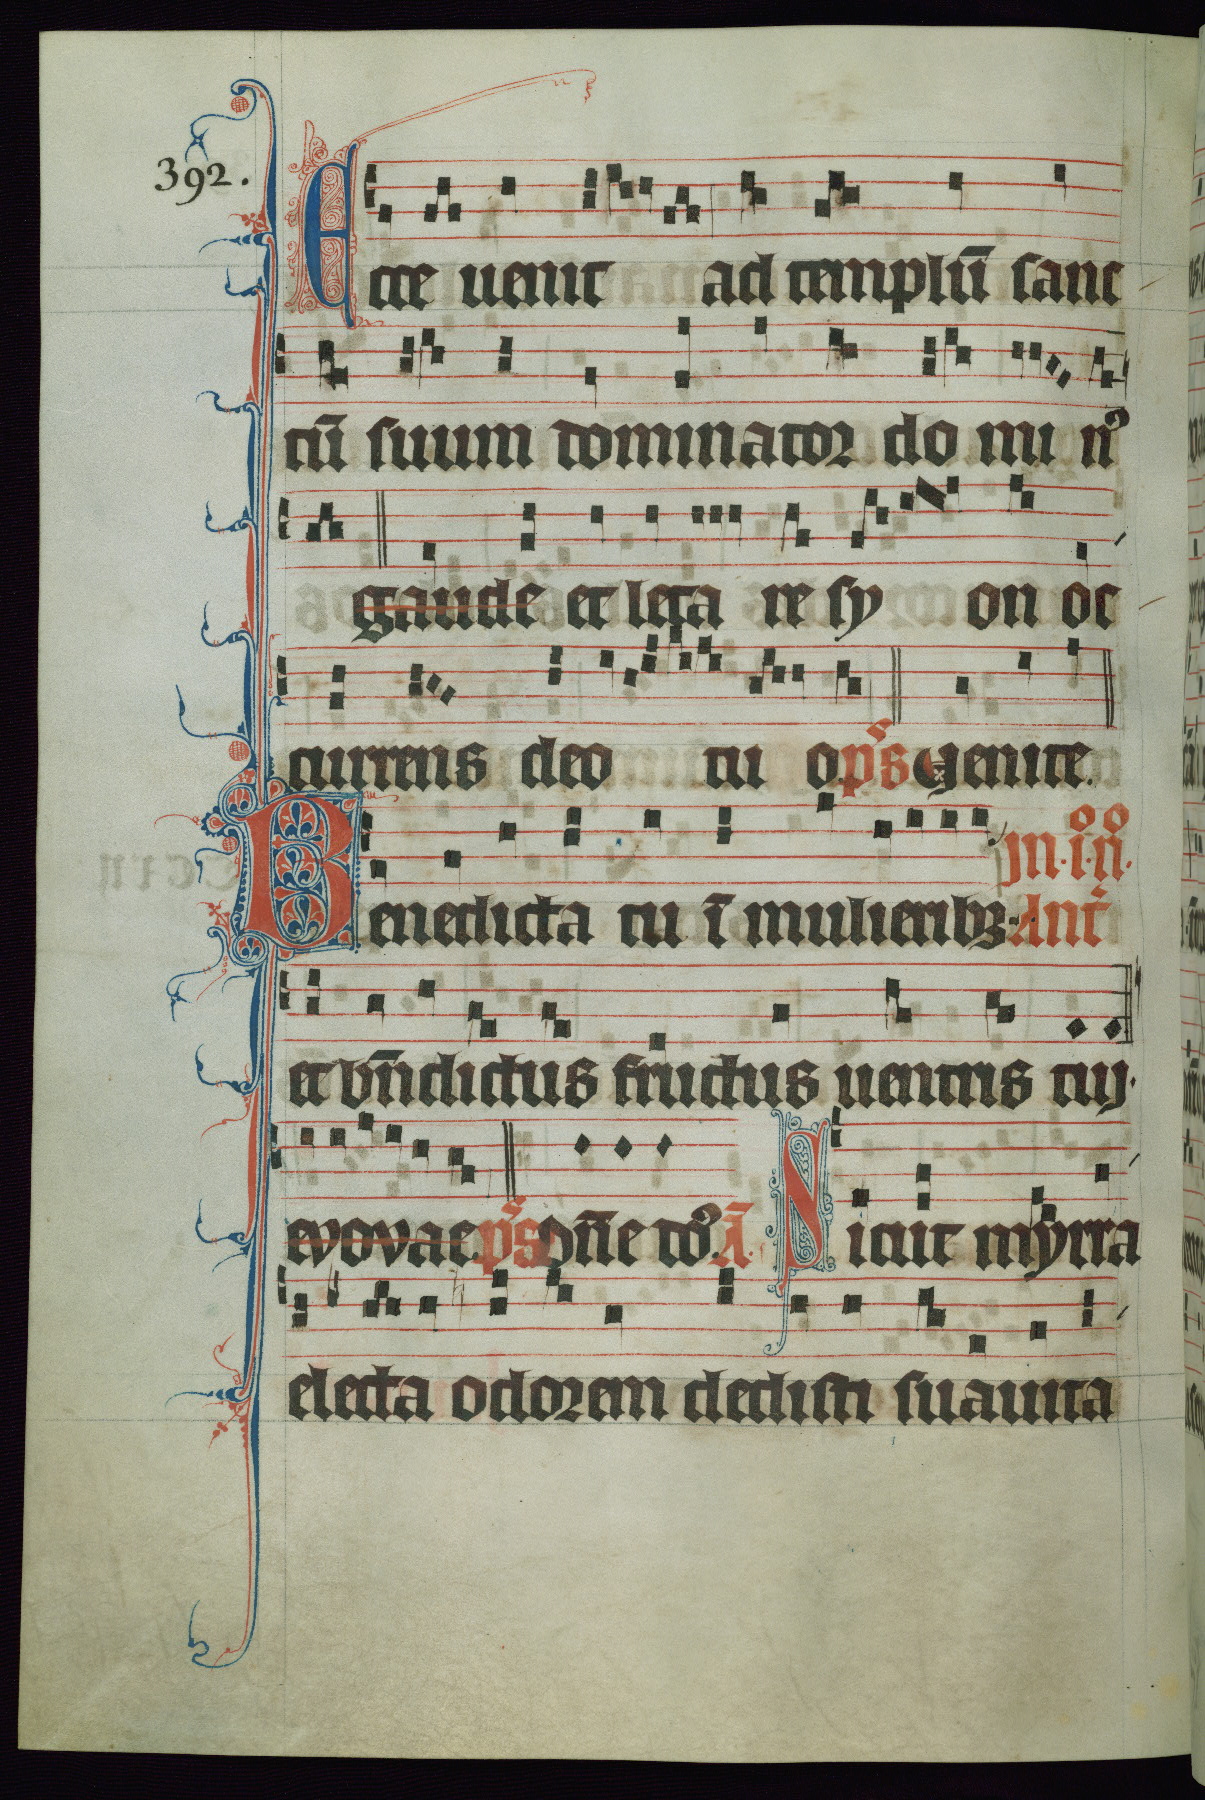 392.
Ecce uenit ad templū sanc
tū suum dominator do mi nꝰ
gaude et leta re sy on oc
currens deo tu o p̄s Uenite.
In .i. n̊.
Benedicta tu ī mulieribꝫ. Ant̄
et bn̄dictus fructus uentris tuj.
evovae. p̄s Dn̄e dꝰ. A̅. Sicut myrra
electa odorem dedisti suauita